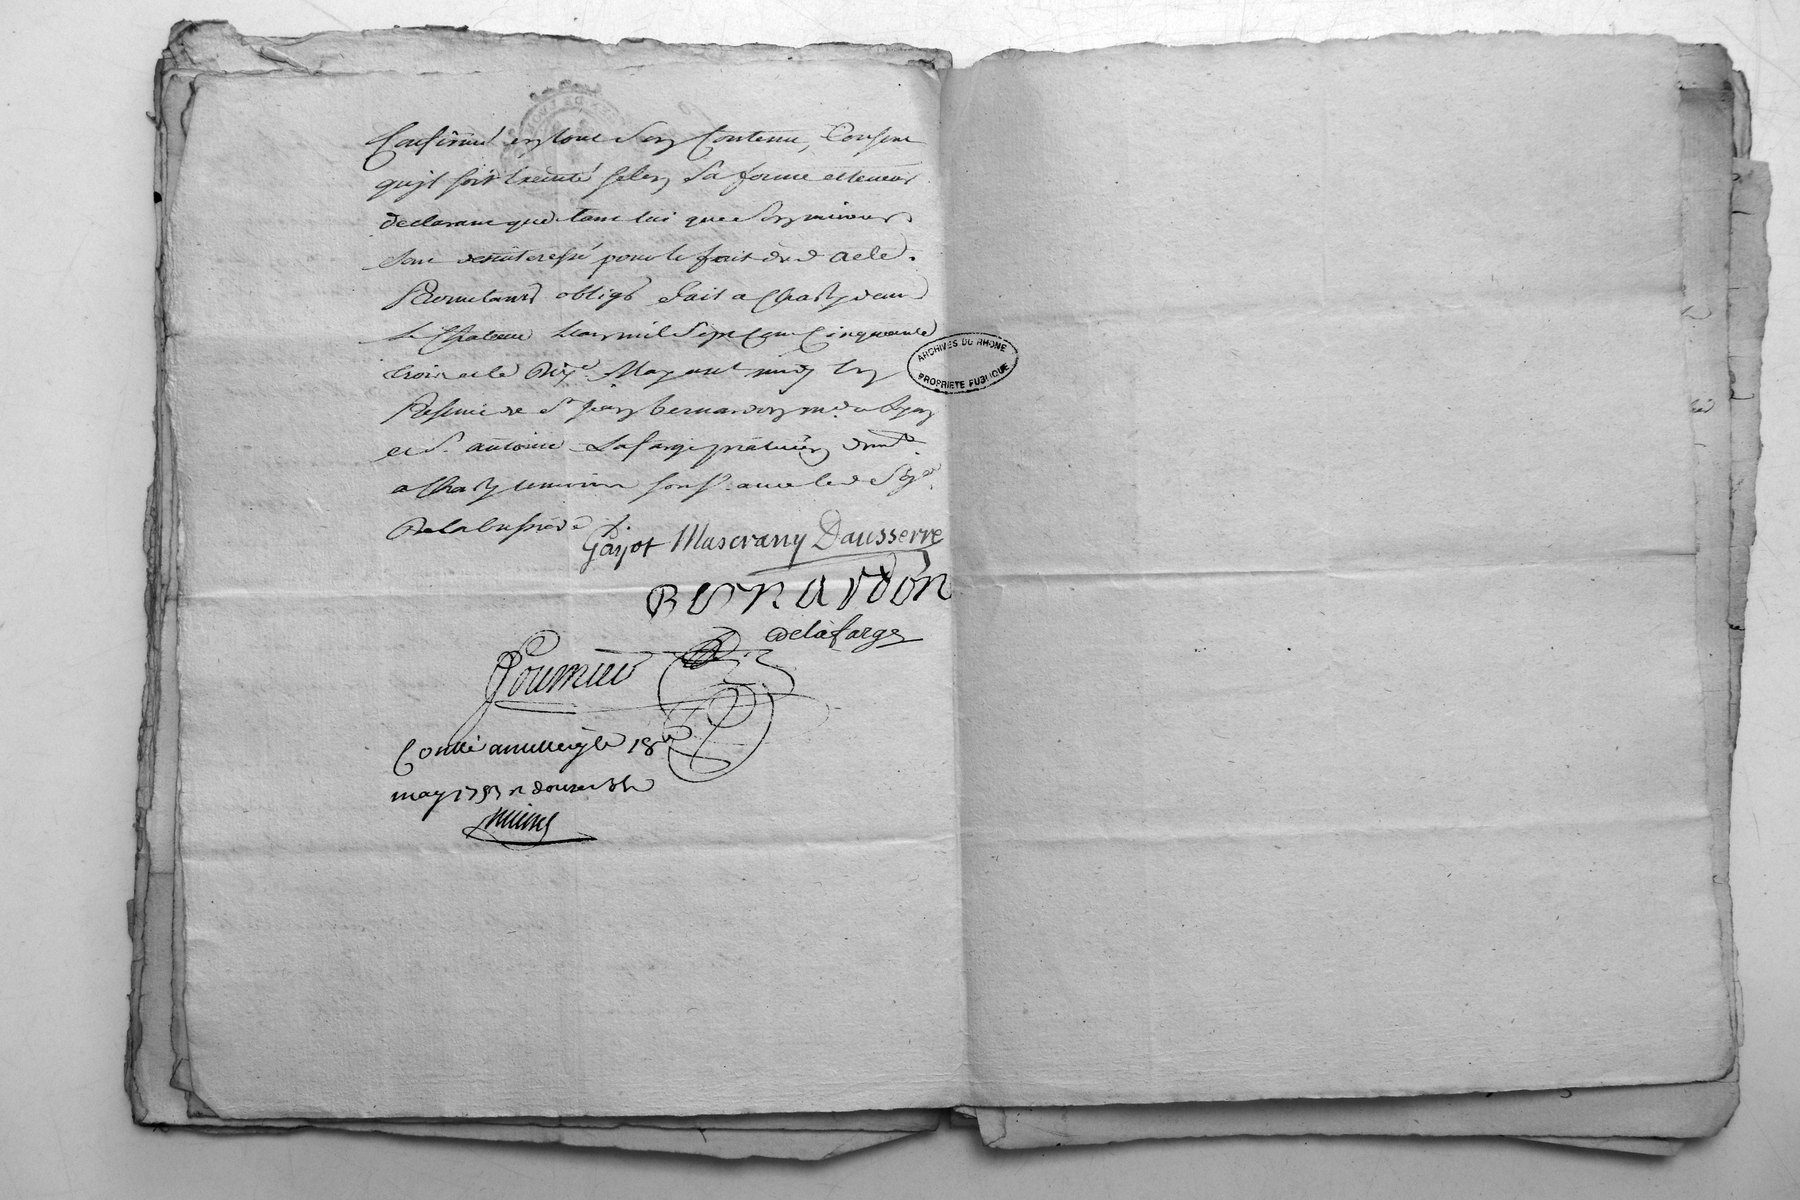 Confirmé en tout son Contenu, Consent
quil soit Execute selon sa forme et teneur
declarant que tant lui que son mineur
sont desinteressé pour le fait du d acte.
Promettant obligt fait a Chasly dans
Le Chateau Lan mil Sept Cent Cinquante
trois et le may avant midy En
Presence de Sr Jean bernardon md a Lyon
et Sr antoine Lafarge praticien demt
a Chasly temoins sousss. avec led Sgr.
De la bussiere
Gayot Mascrany Dausserre
BERNARDON
delafarge
fournier
Conllé a le 18e
may 1753 R douze s
ARCHIVES DU RHONE
PROPRIETE PUBLIQUE